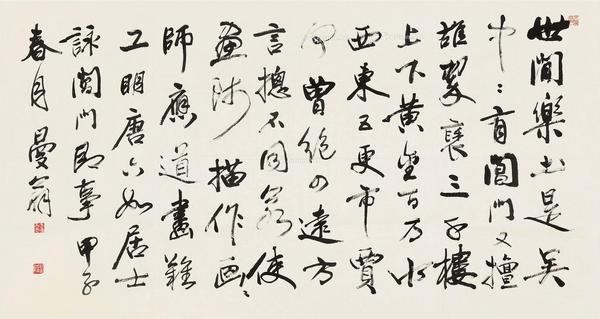 世間樂土是吳
中〻有閶門又擅
雄翠袖三千樓
上下黃金百万水
西東五更市賈
何曾絕四遠方
言摠不同若使
畫師描作画〻
師應道畫難
工明唐六如居士
詠閶門即事 甲子
春月曼翁